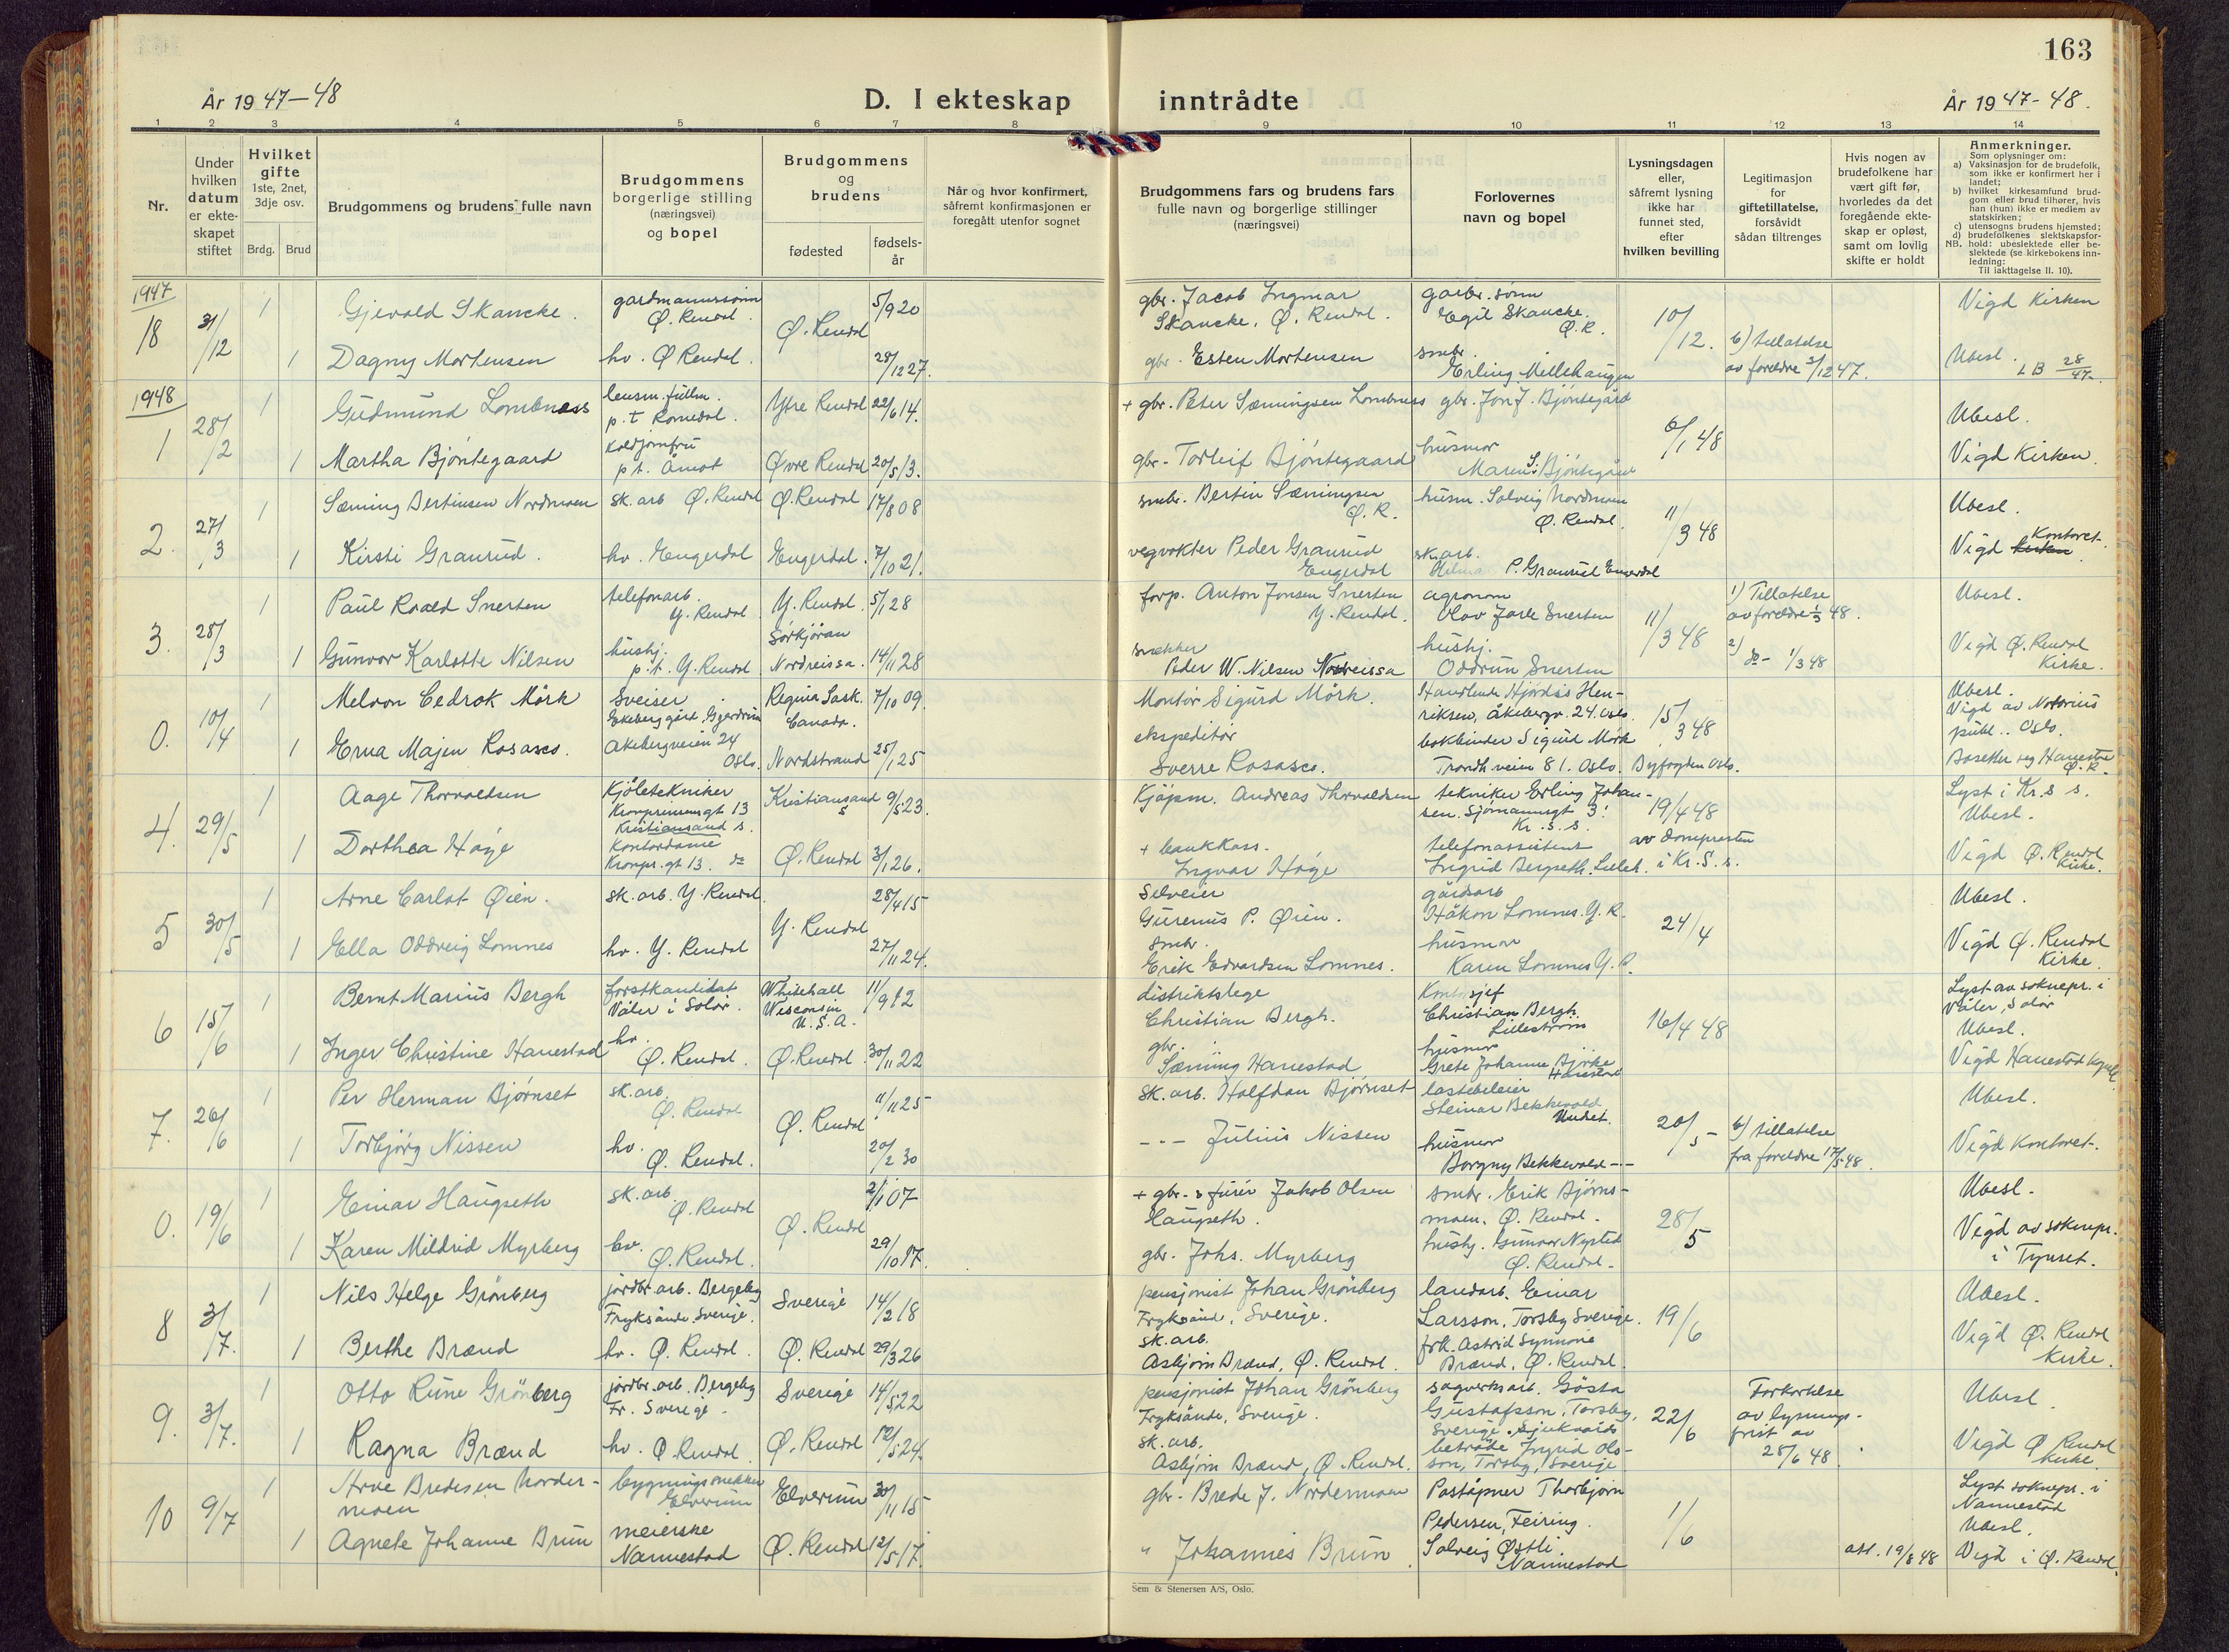 163
År 19 47–48
D. I ekteskap inntrådte
År 19 47-48.
1 2 3 4 5 6 7 8 9 10 11 12 13 14
Nr.
Under hvilken datum er ekte-skapet stiftet
Hvilket gifte
1ste, 2net, 3dje osv.
Brdg. Brud
Brudgommens og brudens fulle navn
Brudgommens borgerlige stilling (næringsvei) og bopel
Brudgommens og brudens
fødested
fødsels-år
Når og hvor konfirmert, såfremt konfirmasjonen er foregått utenfor sognet
Brudgommens fars og brudens fars fulle navn og borgerlige stillinger (næringsvei)
Forlovernes navn og bopel
Lysningsdagen eller, såfremt lysning ikke har funnet sted, efter hvilken bevilling
Legitimasjon for giftetillatelse, forsåvidt sådan tiltrenges
Hvis nogen av brudefolkene har vært gift før, hvorledes da det foregående ekte-skap er opløst, samt om lovlig skifte er holdt
Anmerkninger.
Som oplysninger om:
a) Vaksinasjon for de brudefolk, som ikke er konfirmert her i landet;
b) hvilket kirkesamfund brud-gom eller brud tilhører, hvis han (hun) ikke er medlem av statskirken;
c) utensogns brudens hjemsted;
d) brudefolkenes slektskapsfor-hold: ubeslektede eller be-slektede (se kirkebokens inn-ledning:
NB. Til iakttagelse II. 10).
1947
18 31/12 1 Gjevold Skancke. gardmannssønn Ø. Rendal. Ø. Rendal 5/9 20 gbr. Jacob Ingmar Skancke, Ø. Rendal. garbr. sønn Egil Skancke. Ø.R. 10/12. Vigd Kirken
1 Dagny Mortensen hv. Ø Rendal. 28/12 27. gbr. Esten Mortensen smbr. Erling Mellehaugen b) tillatelse av foreldre 3/12 47. Ubesl. LB 28/47.
1948
1 28/2 1 Gudmund Lombnæss lensm. fullm. p.t Romedal. Ytre Rendal 22/6 14. + gbr. Peter Sæmingsen Lombnæss gbr. Jon J. Bjöntegård 6/1 48 Ubesl.
1 Martha Bjöntegaard koldjomfru p t. Åmot Øvre Rendal 20/5 13. gbr- Torleif Bjöntegaard husmor Maren S. Bjöntegård Vigd Kirken
2. 27/3 1 Sæming Bertinsen Nordmoen sk. arb Ø. Rendal Ø. Rendal 17/8 08 smbr. Bertin Sæmingsen Ø. R. husm. Solveig Nordmoen Ø. Rendal. 11/3 48 Ubesl.
1 Kirsti Granrud. hv. Engerdal Engerdal. 7/10 21. vegvokter Peder Granrud Engerdal sk. arb. P. Granrud Engerdal Vigd Kontoret.
3. 28/3 1 Paul Roald Snerten telefonarb. Y. Rendal Y. Rendal. 5/1 28 forp. Anton Jonsen Snerten Y. Rendal. agronom Olav Jarle Snerten 11/3 48 1) Tillatelse av foreldre 1/3 48. Ubesl.
1 Gunvor Karlotte Nilsen hushj. p.t. Y. Rendal Sørkjosen Nordreissa. 14/11 28 snekker Peder W. Nilsen Nordreissa hushj. Oddrun Snerten 2) do- 1/3 48 Vigd Ø. Rendal Kirke.
0. 10/4 1 Melvon Cedrok Mörk Sveiser Ekeberg gård, Gjerdrum Regina Sask. Canada. 7/10 09. Montör Sigurd Mörk. Handlende Hjördis Hen-riksen, Åkebergv. 24. Oslo. 15/3 48 Ubesl. Vigd av Notorius publ.. Oslo.
1 Erna Majen Rosasco. Akebergveien 24 Oslo. Nordstrand 25/1 25 ekspeditör Sverre Rosasco. bokbinder Sigurd Mörk Trondh.veien 81. Oslo. Byfogden Oslo. Bosetter seg Hanestad Ø.R.
4. 29/5 1 Aage Thorvaldsen Kjöletekniker Kronprinsensgt 13 Kristiansand s. Kristiansand s 9/5 23. Kjöpm. Andreas Thorvaldsen tekniker Erling Johan-sen. Sjömannsgt 3. Kr. S. s. 19/4 48 av domprosten i Kr. S. s. Lyst i Kr.s s. Ubesl.
1 Dorthea Höye Kontordame Kronpr. gt 13. do Ø. Rendal 3/1 26. + bankkass. Ingvar Höye telefonassistent Ingrid Bergseth. Lilleh. Vigd Ø. Rendal Kirke.
5 30/5 1 Arne Carlot Øien. sk. arb. Y. Rendal. Y. Rendal 28/4 15 selveier Gurenus P. Øien. gårdsarb Håkon Lomnes. Y. R. 24/4 Ubesl.
1 Ella Oddveig Lomnes hv. Y. Rendal 27/11 24. smbr. Erik Edvardsen Lomnes. husmor Karen Lomnes Y. R. Vigd Ø. Rendal Kirke.
6 15/6 1 Bernt Marius Bergh forstkandidat Våler i Solör. Whitehall Wisconsin U.S.A. 11/9 12 distriktslege Christian Bergh. Kontorsjef Christian Bergh. Lilleström 16/4 48 Lyst av soknepr. i Våler, Solör Ubesl.
1 Inger Christine Hanestad hv. Ø. Rendal. Ø. Rendal. 30/11 22 gbr. Sæming Hanestad husmor Grete Johanne Björke Hanestad Vigd Hanestad Kapell
7. 26/6 1 Per Herman Bjørnset sk. arb. Ø. Rendal Ø. Rendal 11/11 25 sk. arb. Halfdan Bjørnset lastebileier Steinar Bekkevold Undset. 20/5- Ubesl.
1 Torbjörg Nissen hv. Ø. Rendal. 20/2 30 --- Julius Nissen husmor Borgny Bekkevold -- b) tillatelse fra foreldre 17/5 48. Vigd kontoret.
0. 19/6 1 Einar Haugseth sk. arb. Ø. Rendal Ø. Rendal 2/1 07 + gbr. s furér Jakob Olsen Haugseth. smbr. Erik Bjørns-moen, Ø. Rendal. 28/5 Ubesl.
1 Karen Mildrid Myrberg hv. Ø. Rendal. 29/10 17. gbr. Johs. Myrberg hushj. Gunvor Nysted Ø. Rendal. Vigd av soknepr. i Tynset.
8 3/7. 1 Nils Helge Grönberg jordbr. arb. Bergeby Fryksände Sverige. Sverige 14/2 18 pensjonist Johan Grönberg Fryksände, Sverige. landarb. Einar Larsson, Torsby Sverige. 19/6 Ubesl.
1 Berthe Brænd hv. Ø. Rendal. Ø. Rendal 29/3 26 sk. arb. Asbjörn Brænd, Ø. Rendal. frk. Astrid Synnöve Brænd, Ø. Rendal. Vigd Ø. Rendal Kirke.
9. 3/7. 1 Otto Rune Grönberg jordbr. arb. Bergeby Fr. Sverige. Sverige 14/5 22 pensjonist Johan Grönberg Fryksände, Sverige. sagverksarb. Gösta Gustafsson, Torsby, Sverige. 22/6 Forkortelse av lysnings-frist av 25/6 48 Ubesl.
1 Ragna Brænd hv. Ø Rendal Ø. Rendal 12/5 24. sk. arb. Asbjörn Brænd, Ø Rendal. Sjukvårds beträde Ingrid Ols-son, Torsby, Sverige Vigd Ø Rendal Kirke.
10 9/7 1 Arve Bredesen Norder-moen bygningssnekker Elverum Elverum 30/11 15 gbr. Brede J. Nordermoen Poståpner Thorbjørn Pedersen, Feiring. 1/6 Lyst soknepr. i Nannestad Ubesl.
1 Agnete Johanne Brun meierske Nannestad Ø. Rendal 12/5 17. " Johannes Brun Solveig Østli. Nannestad att. 19/8 48 Vigd i Ø. Rendal.
Sem & Stenersen A/S, Oslo.